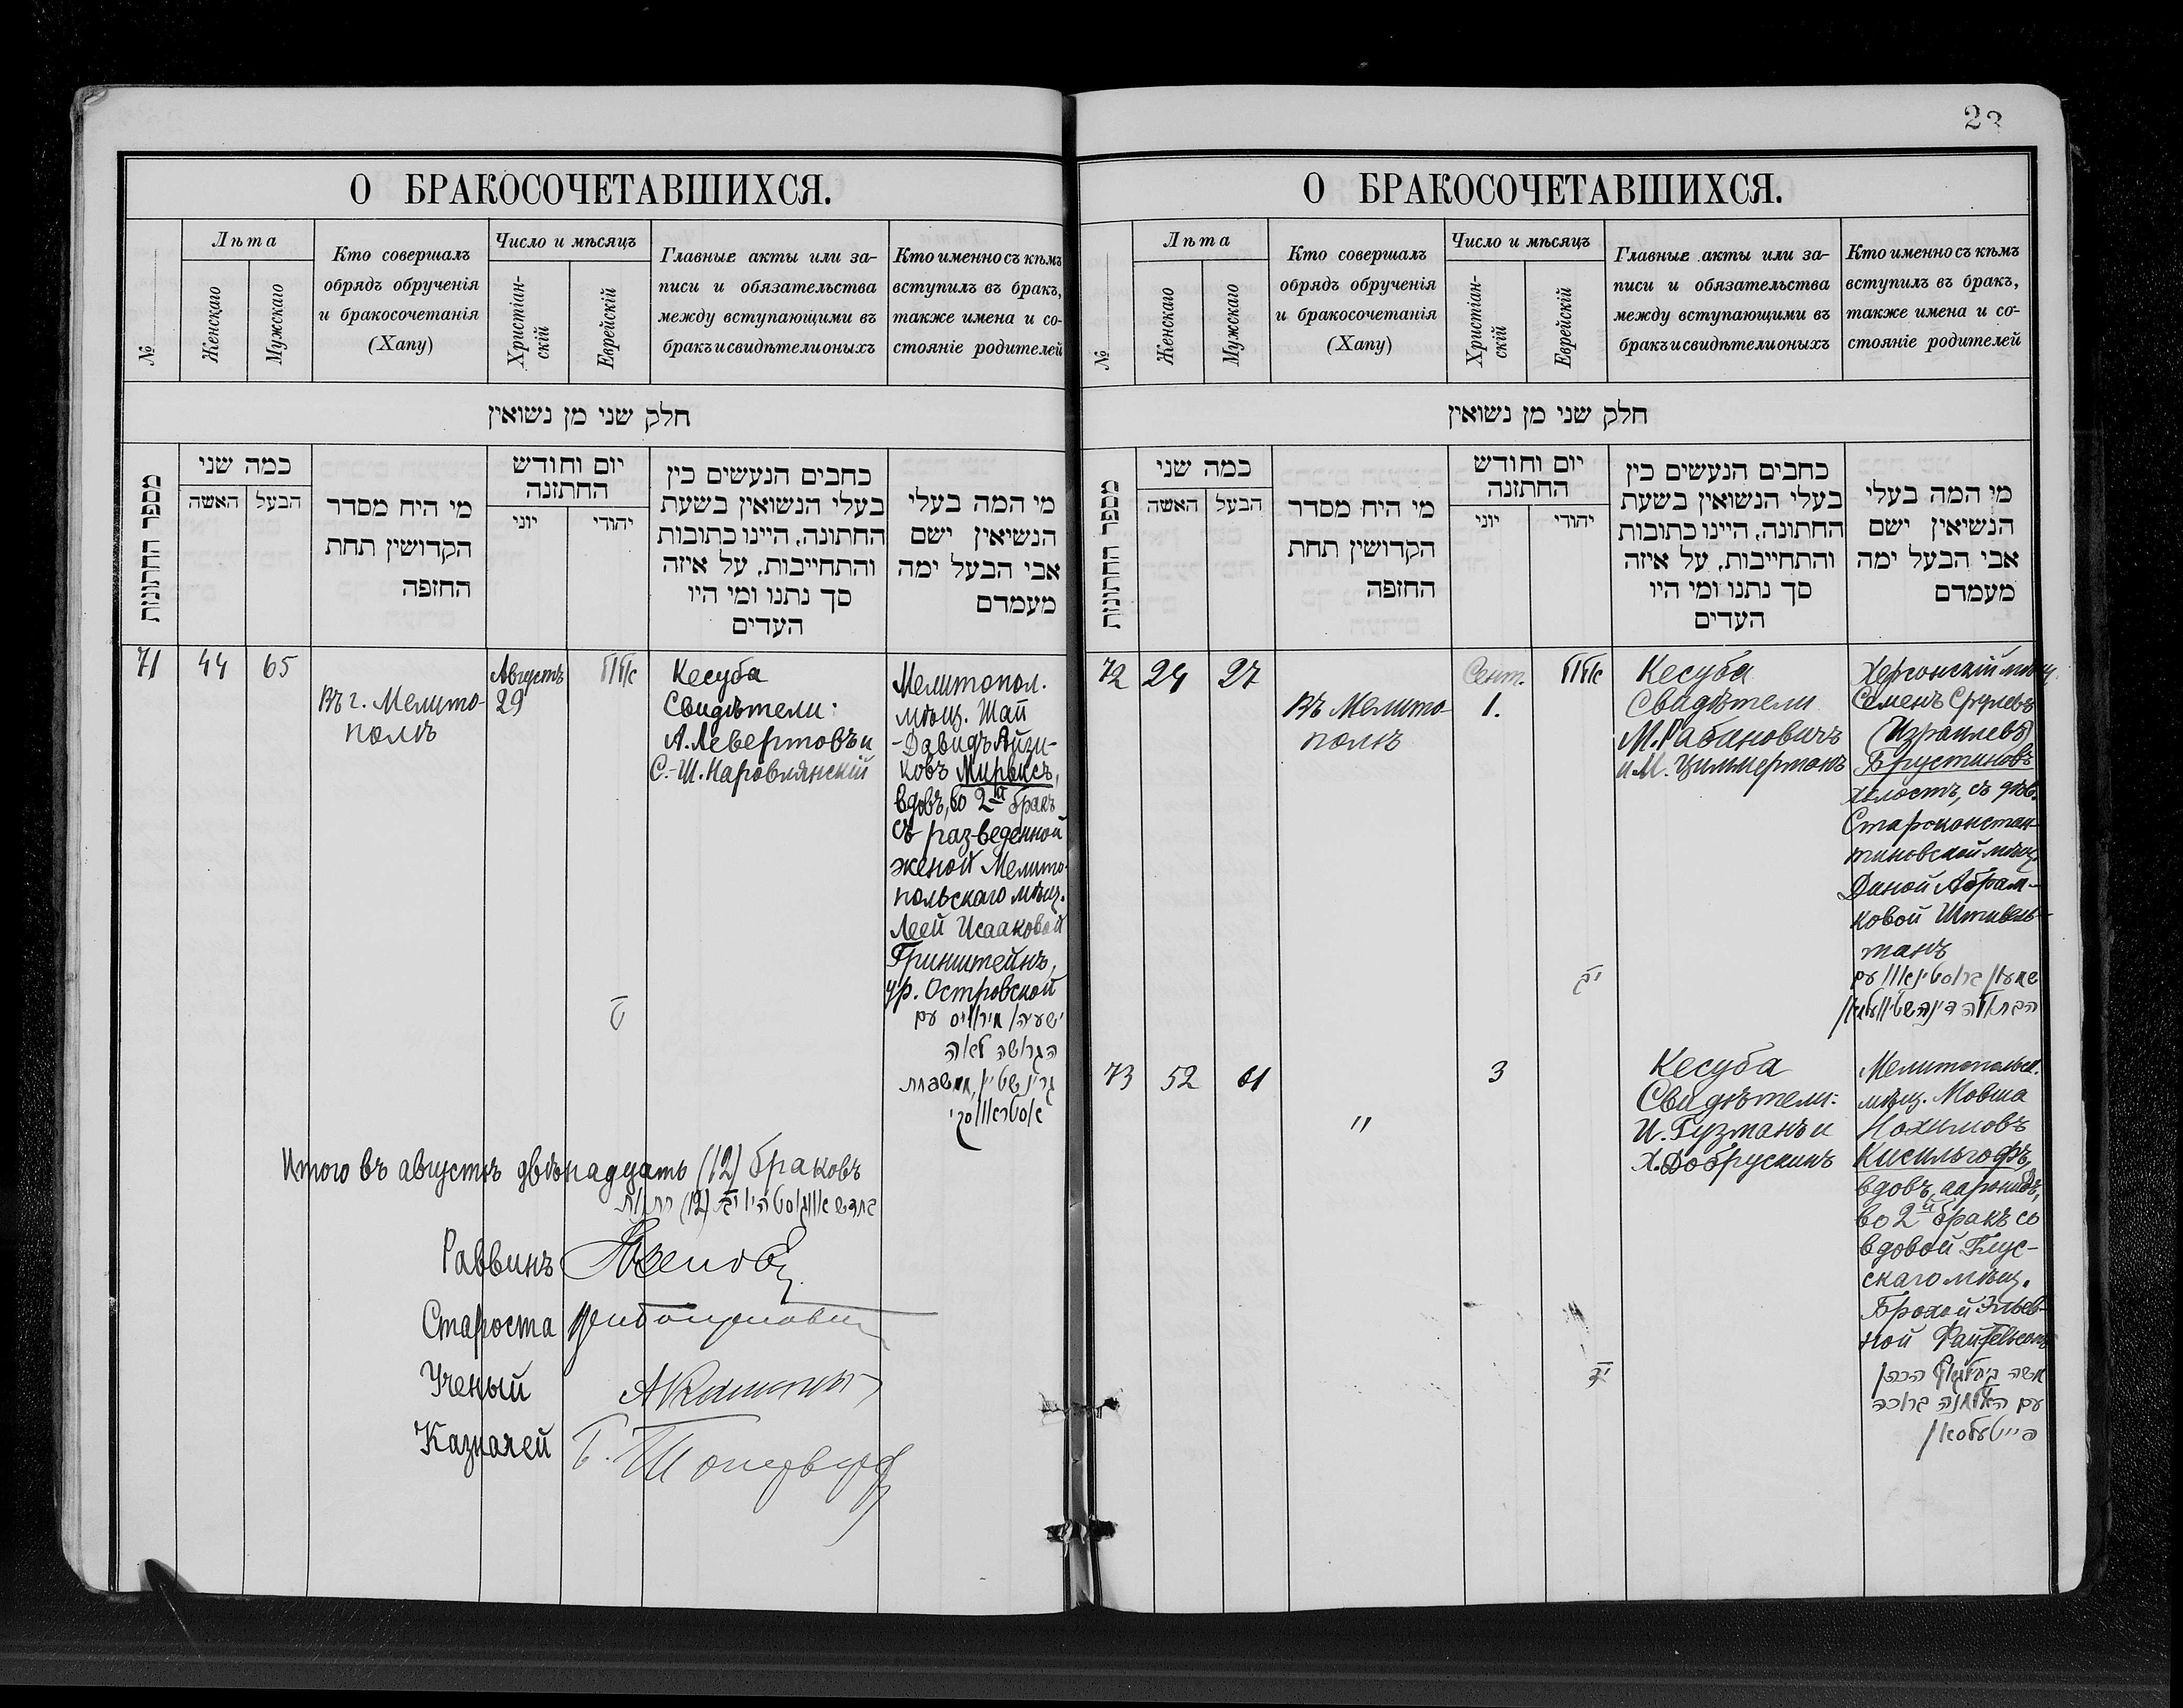 О БРАКОСОЧЕТАВШИХСЯ.
№
Лѣта
Женскаго
Мужскаго
Кто совершалъ
обрядъ обрученія
и бракосочетанія
(Хапу)
Число и мѣсяцъ
Христіан-
скій
Еврейскій
Главные акты или за-
писи и обязательства
между вступающими въ
бракъ и свидѣтели оныхъ
Кто именно съ кѣмъ
вступилъ въ бракъ,
также имена и со-
стояніе родителей
חלק שני מן נשואין
מספר החתונות
כמה שני
האשה
הבעל
מי היח מסדר
הקדושין תחת
החזפה
יום וחודש
החתונה
יוני
יהודי
כחבים הנעשים כין
בעלי הנשואין בשעת
החתונה, היינו כתובות
והתחייבות, על איזה
סך נתנו ומי היו
העדים
מי המה בעלי
הנשיאין ישם
אבי הבעל ימה
מעמדם
71
44
65
Въ г. Мелито-
полѣ
Августъ
29
Кесуба
Свидѣтели:
А. Левертовъ и
С.-Ш. Наровлянскій
Мелитопол.
мѣщ. Шая
-Давидъ Айзи-
ковъ Мирвисъ,
вдовъ, во 2й бракъ
съ разведенной
женой Мелито-
польскаго мѣщ.
Леей Исааковой
Гринштейнъ,
ур. Островской
ישעיה מירוויס עם
הגרושה לאה
גרינשטיין, משפחת
אסטראווסקי
Итого въ августѣ двѣнадцать (12) браковъ
בחדש אווגוסט היו יב (12) חתונות
Раввинъ
Староста
Ученый
Казначей
23
О БРАКОСОЧЕТАВШИХСЯ.
№
Лѣта
Женскаго
Мужскаго
Кто совершалъ
обрядъ обрученія
и бракосочетанія
(Хапу)
Число и мѣсяцъ
Христіан-
скій
Еврейскій
Главные акты или за-
писи и обязательства
между вступающими въ
бракъ и свидѣтели оныхъ
Кто именно съ кѣмъ
вступилъ въ бракъ,
также имена и со-
стояніе родителей
חלק שני מן נשואין
מספר החתונות
כמה שני
האשה
הבעל
מי היח מסדר
הקדושין תחת
החזפה
יום וחודש
החתונה
יוני
יהודי
כחבים הנעשים כין
בעלי הנשואין בשעת
החתונה, היינו כתובות
והתחייבות, על איזה
סך נתנו ומי היו
העדים
מי המה בעלי
הנשיאין ישם
אבי הבעל ימה
מעמדם
72
24
27
Въ Мелито-
полѣ
Сент.
1.
Кесуба
Свидѣтели
М. Рабиновичъ
и М. Циммерманъ
Херсонскій мѣщ.
Семенъ Срулевъ
(Израилевъ)
Брустиновъ
холостъ, съ дѣв.
Староконстан-
тиновской мѣщ.
Диной Абрам-
ковой Штивель-
манъ
שמעון ברוסטינאוו עם
הבתולה דינה שטיוועלמאן
73
52
61
"
3
Кесуба
Свидѣтели:
И. Гузманъ и
Х. Добрускинъ
Мелитопольск.
мѣщ. Мовша
Нохимовъ
Кисильгофъ,
вдовъ, ааронидъ,
во 2й бракъ со
вдовой Глус-
скаго мѣщ.
Брохой Эльев-
ной Файтельсонъ
משה קיסלגאף הכהן
עם האלמנה ברוכה
פייטעלסאן